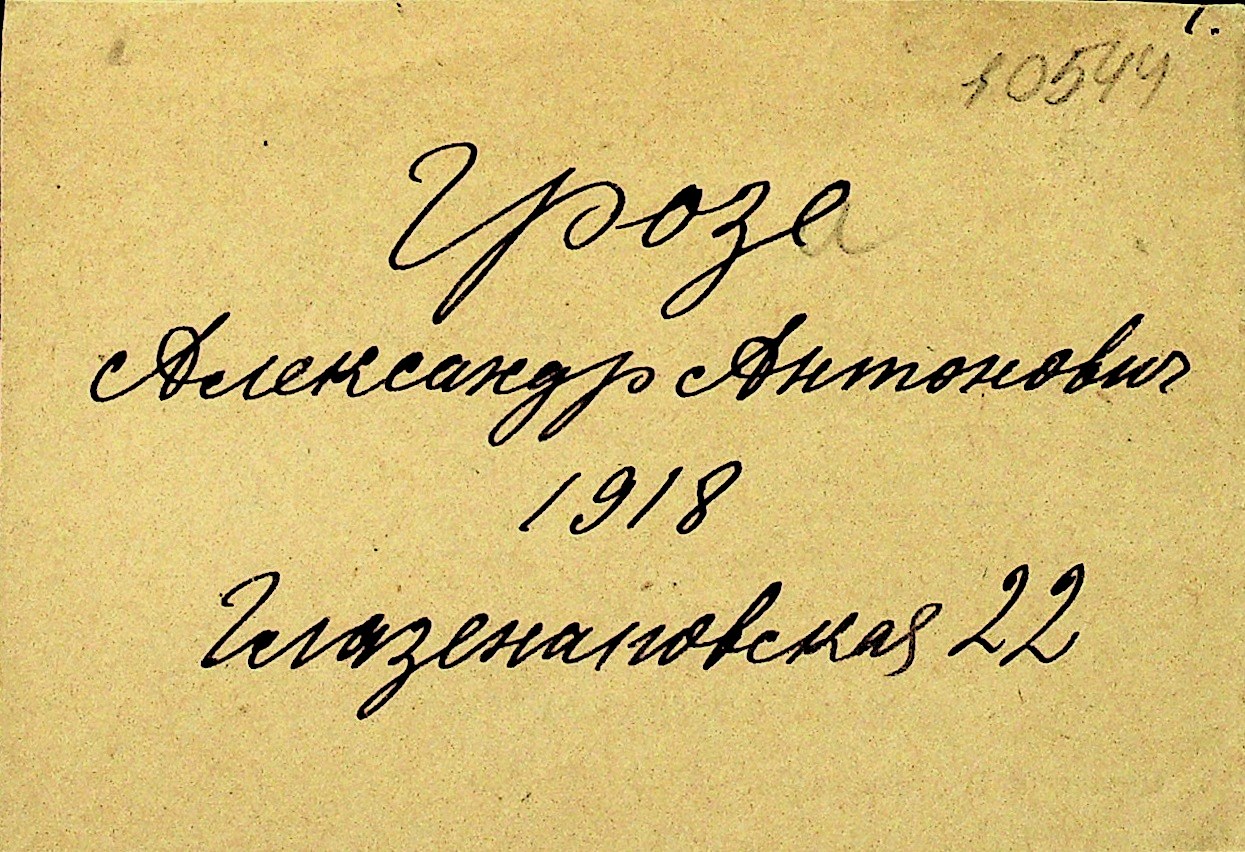 1.
10544
Гроза
Александр Антонович
1918
Глазенаповская 22